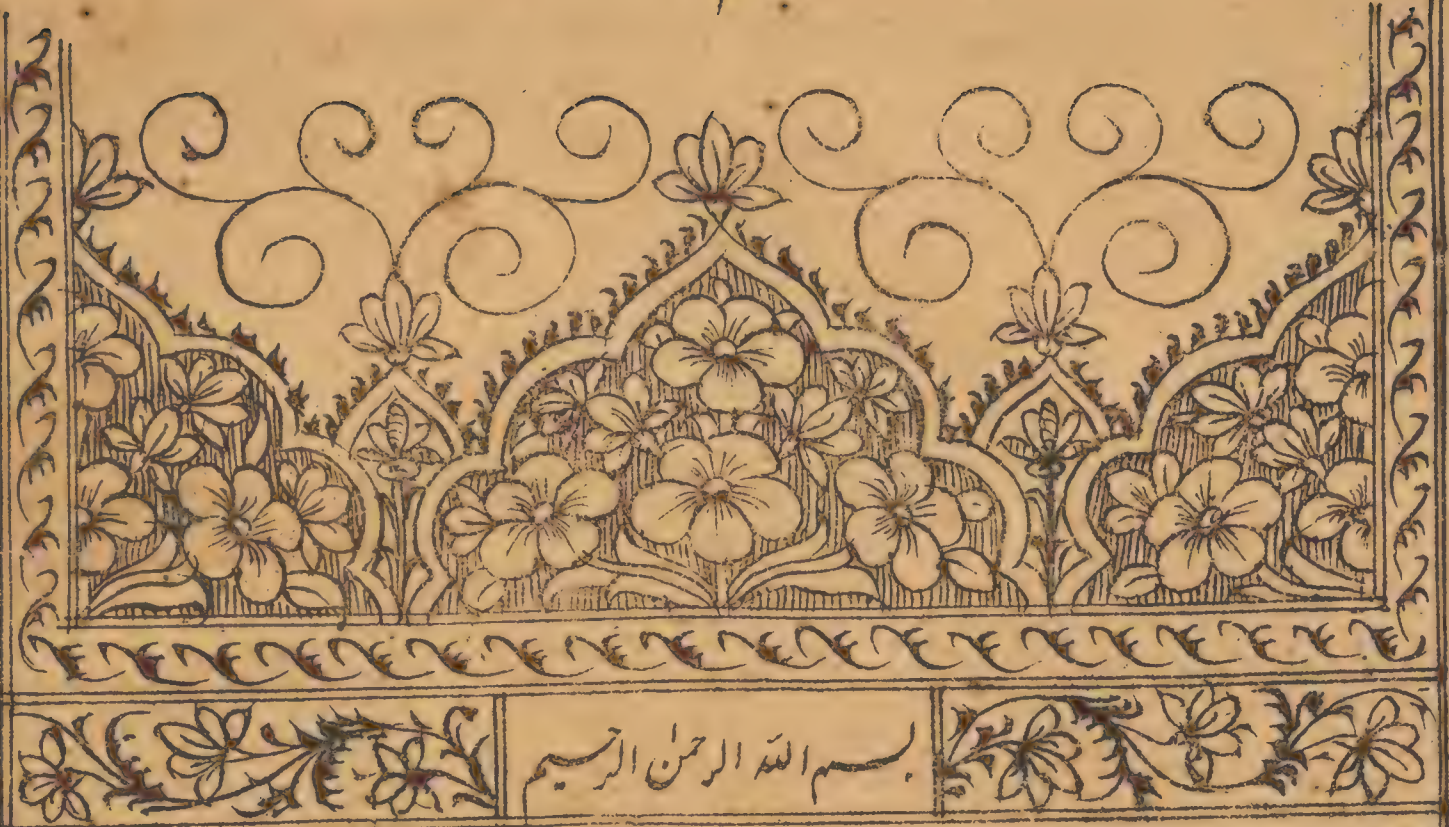 بسم الله الرحمٰن الرحیم